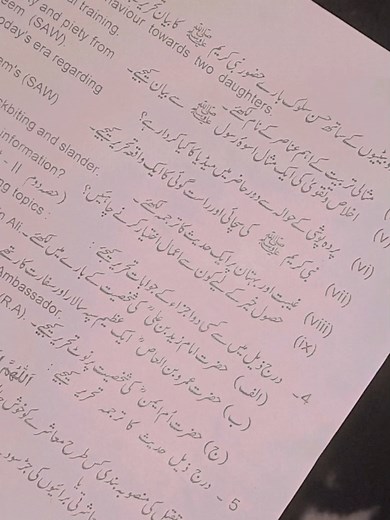 al training.
haviour towards two daughters.
ty and piety from
eem (SAW).
oday's era regarding
em's (SAW)
kbiting and slander.
information?
ng topics :
n Ali.
Ambassador.
(R.A).
بیٹیوں کے ساتھ حسن سلوک بارے حضور نبی کریم ﷺ کا بیان تحریر
مثالی تربیت کے اہم عناصر کے نام لکھیے۔
(v) اخلاص و تقویٰ کی ایک مثال اسوہ رسول ﷺ سے بیان کیجیے۔
(vi) پردہ پوشی کے حوالہ سے دور حاضر میں میڈیا کا کیا کردار ہے؟
(vii) نبی کریم ﷺ کی سچائی اور راست گوئی کا ایک واقعہ تحریر کیجیے۔
(viii) غیبت اور بہتان پر ایک حدیث کا ترجمہ لکھیے۔
(ix) حصول خیر کے لیے کون سے اعمال اختیار کرنے چاہئیں؟
(حصہ دوم - II
4- درج ذیل میں سے کسی دو اجزاء کے جوابات تحریر کیجیے :
(الف) حضرت امام زید بن علیؒ کی شخصیت کے بارے میں لکھیے۔
(ب) حضرت عمرو بن العاصؓ ایک عظیم سپہ سالار اور سفارت کار تھے
(ج) حضرت اُم ایمنؓ کی شخصیت پر نوٹ تحریر کیجیے۔
5- درج ذیل حدیث کا ترجمہ تحریر کیجیے :
اَللّٰهُمَّ
کی منصوبہ بندی کس طرح معاشرے کو خوش
معاشرتی برائیوں کی جڑ سود